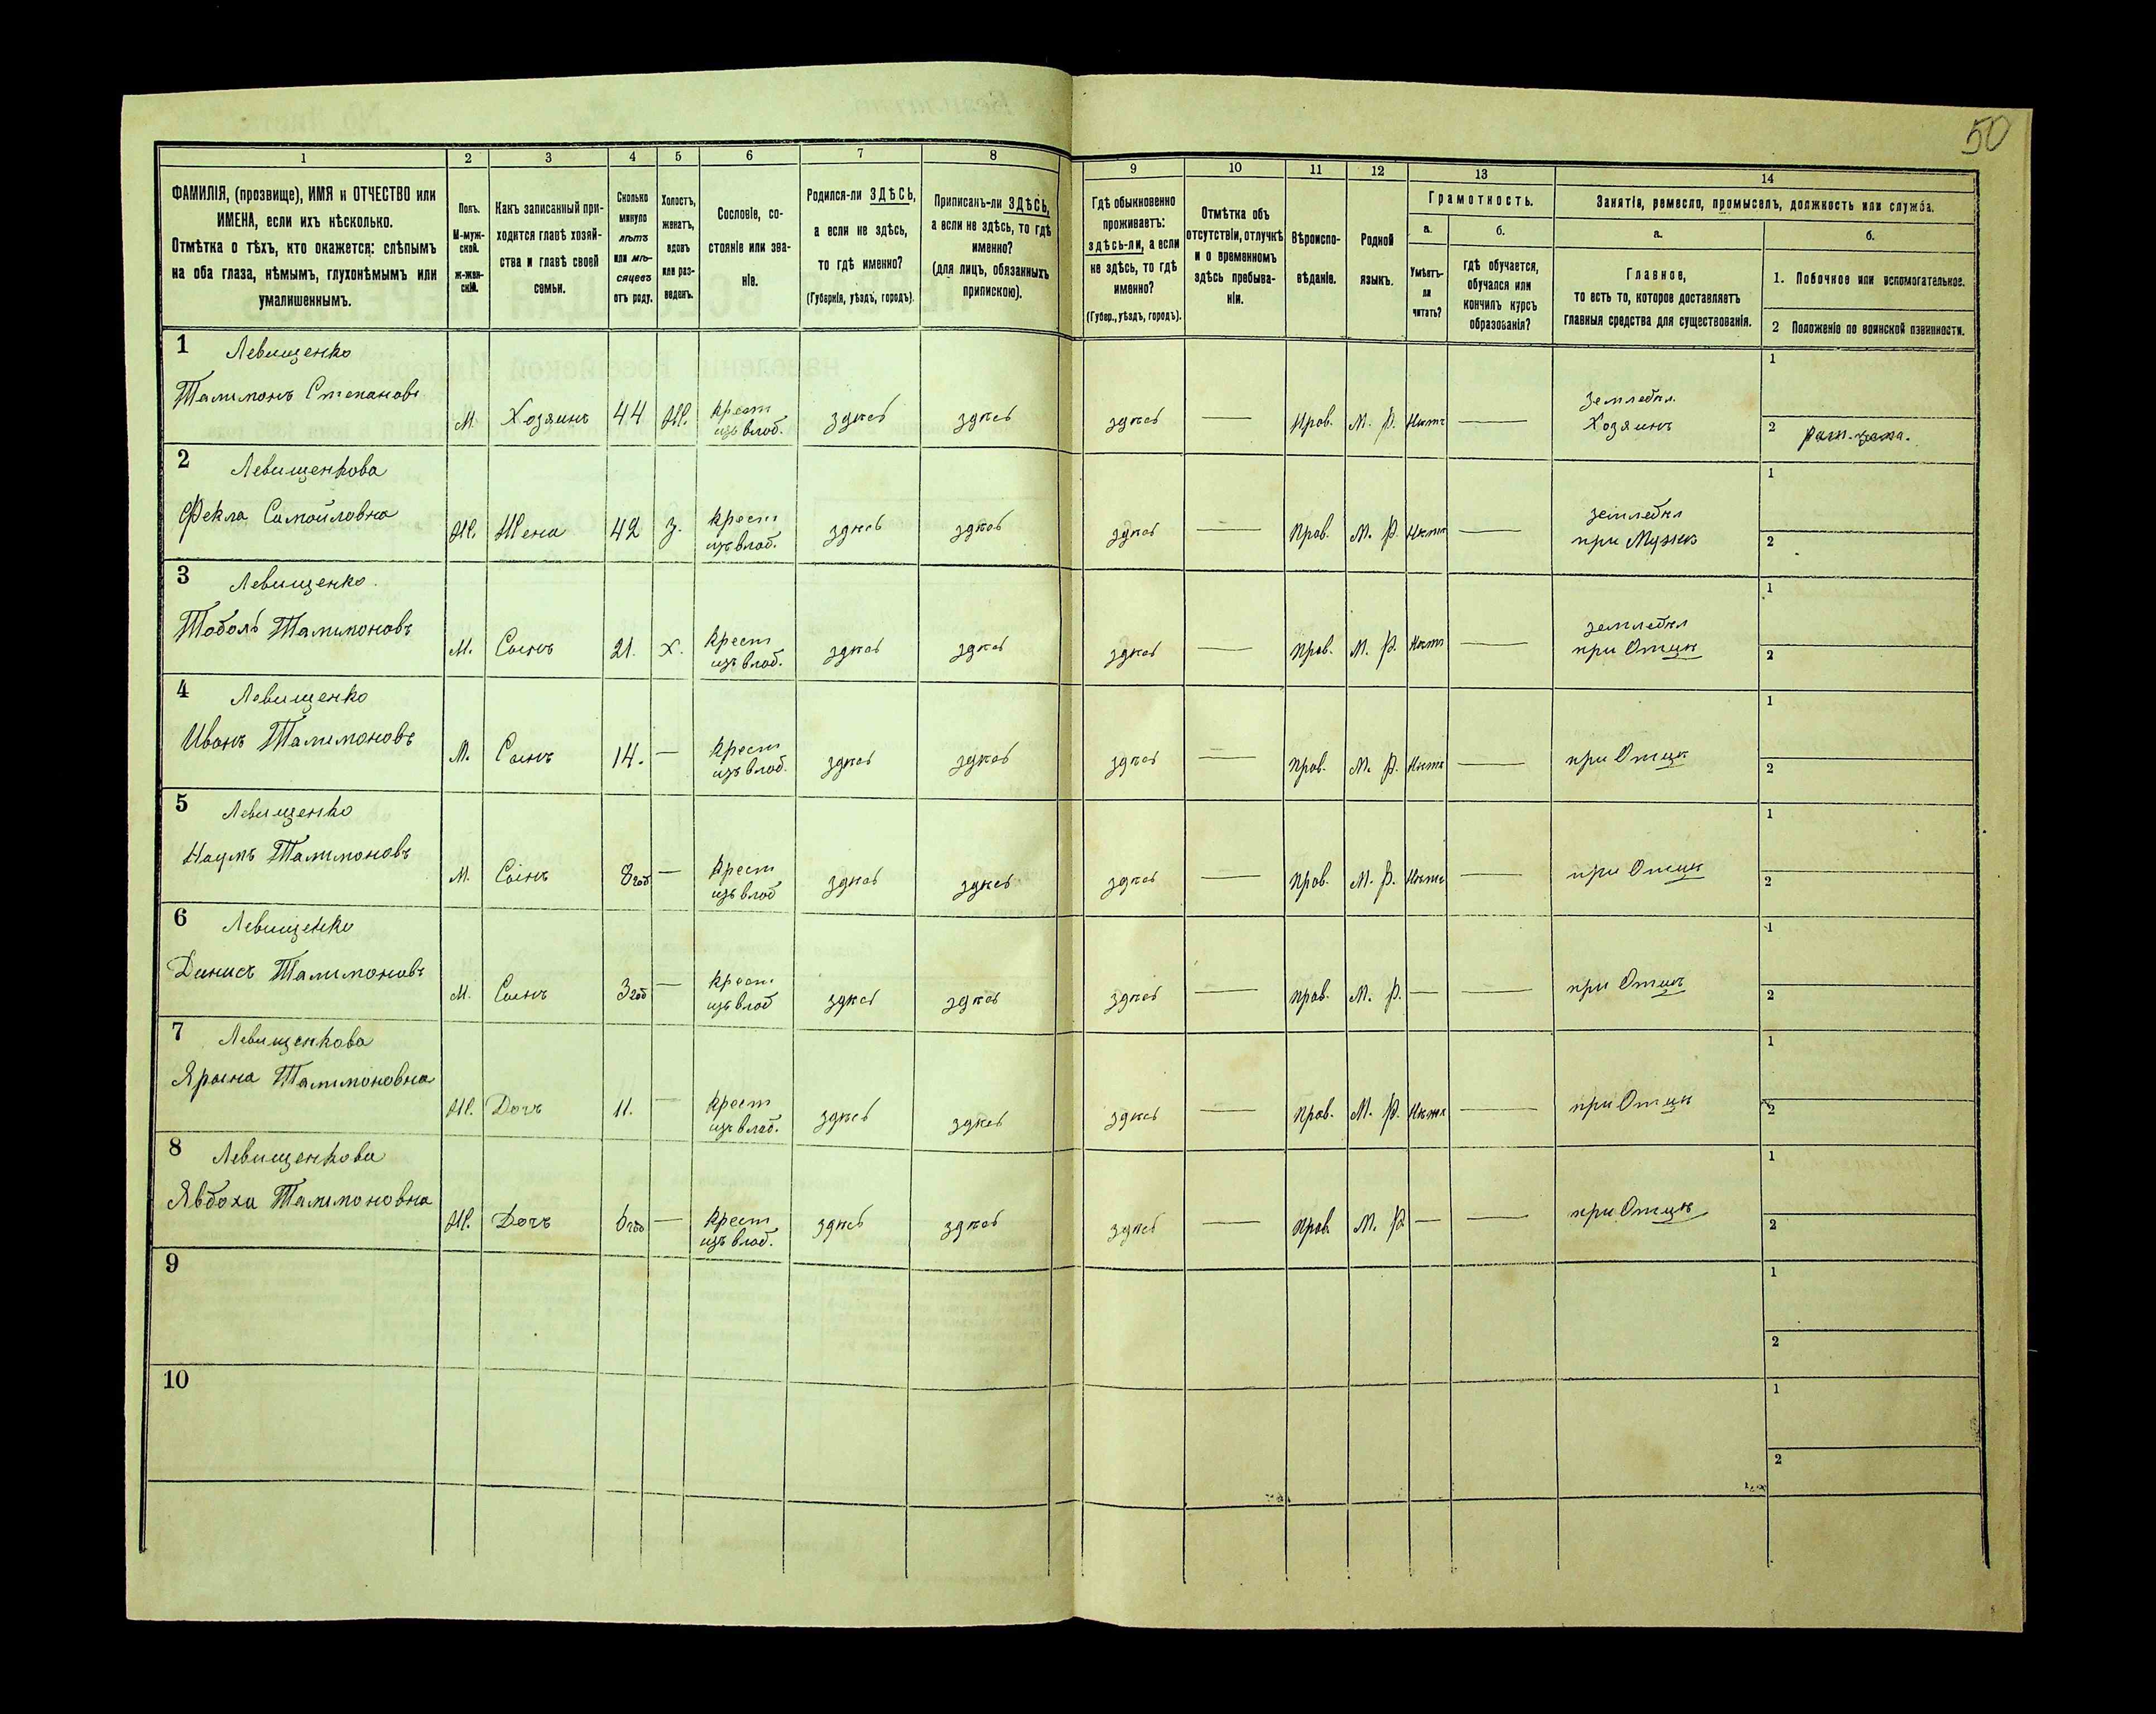 50
1
2
3
4
5
6
7
8
9
10
11
12
13
14
ФАМИЛІЯ, (прозвище), ИМЯ и ОТЧЕСТВО или
ИМЕНА, если ихъ нѣсколько.
Отмѣтка о тѣхъ, кто окажется: слѣпымъ
на оба глаза, нѣмымъ, глухонѣмымъ или
умалишеннымъ.
Полъ.
М-муж-
ской.
ж-жен-
скій.
Какъ записанный при-
ходится главѣ хозяй-
ства и главѣ своей
семьи.
Сколько
минуло
лѣтъ
или мѣ-
сяцевъ
отъ роду.
Холостъ,
женатъ,
вдовъ
или раз-
веденъ.
Сословіе, со-
стояніе или зва-
ніе.
Родился-ли ЗДѢСЬ,
а если не здѣсь,
то гдѣ именно?
(Губернія, уѣздъ, городъ).
Приписанъ-ли ЗДѢСЬ,
а если не здѣсь, то гдѣ
именно?
(для лицъ, обязанныхъ
припискою).
Гдѣ обыкновенно
проживаетъ:
здѣсь-ли, а если
не здѣсь, то гдѣ
именно?
(Губер., уѣздъ, городъ).
Отмѣтка объ
отсутствіи, отлучкѣ
и о временномъ
здѣсь пребыва-
ніи.
Вѣроиспо-
вѣданіе.
Родной
языкъ.
Грамотность.
а.
Умѣетъ-
ли
читать?
б.
гдѣ обучается,
обучался или
кончилъ курсъ
образованія?
Занятіе, ремесло, промыселъ, должность или служба.
а.
Главное,
то есть то, которое доставляетъ
главныя средства для существованія.
б.
1. Побочное или вспомогательное.
2 Положеніе по воинской повинности.
1 Левищенко
Талимонъ Степановъ
М. Хозяинъ 44 Ж. крест здѣсь здѣсь здѣсь — Прав. М. Р. Нѣтъ — земледѣл.
изъ влад. Хозяинъ
1
2
2 Левищенкова
Фекла Самойловна
Ж. Жена 42 З. крест здѣсь здѣсь здѣсь — Прав. М. Р. Нѣтъ — земледѣл
изъ влад. при Мужѣ
1
2
3 Левищенко
Тамимоновъ
М. Сынъ 21. Х. крест здѣсь здѣсь здѣсь — Прав. М. Р. Нѣтъ — земледѣл
изъ влад. при Отцѣ
1
2
4 Левищенко
Иванъ Талимоновъ
М. Сынъ 14. — крест здѣсь здѣсь здѣсь — Прав. М. Р. Нѣтъ — при Отцѣ
изъ влад.
1
2
5 Левищенко
Наумъ Талимоновъ
М. Сынъ 8 год — крест здѣсь здѣсь здѣсь — Прав. М. Р. Нѣтъ — при Отцѣ
изъ влад
1
2
6 Левищенко
Денисъ Талимоновъ
М. Сынъ 3 год — крест здѣсь здѣсь здѣсь — Прав. М. Р. — — при Отцѣ
изъ влад
1
2
7 Левищенкова
Ярына Талимоновна
Ж. Дочъ 11. — крест здѣсь здѣсь здѣсь — Прав. М. Р. Нѣтъ — при Отцѣ
изъ влад.
1
2
8 Левищенкова
Явдоха Талимоновна
Ж. Дочъ 6 год — крест здѣсь здѣсь здѣсь — Прав. М. Р. — — при Отцѣ
изъ влад.
1
2
9
1
2
10
1
2